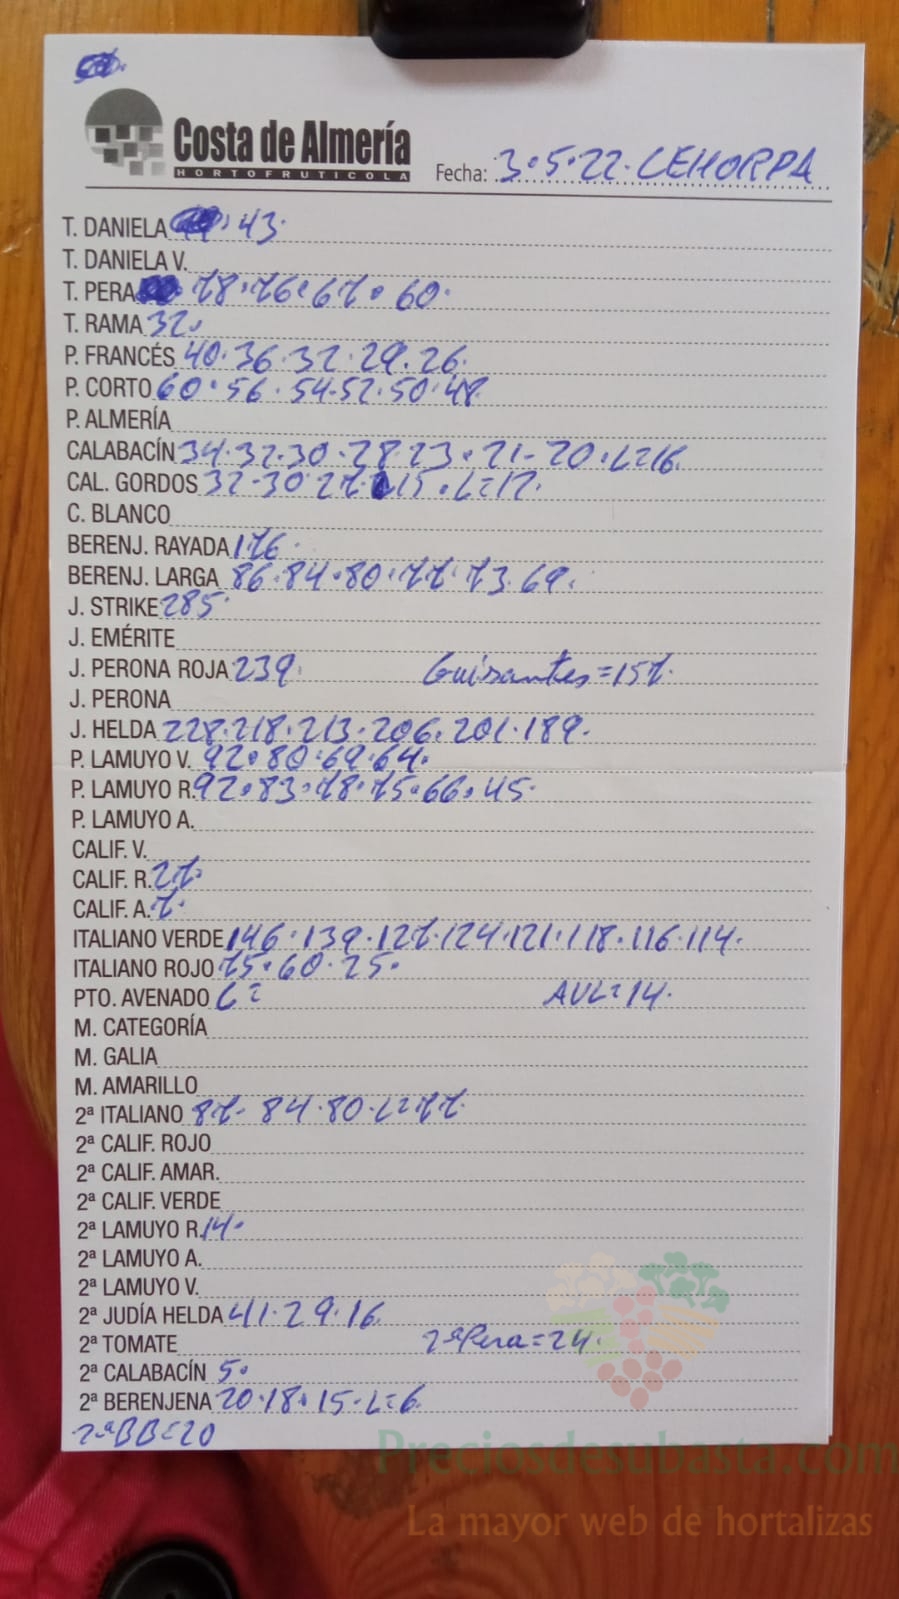 Costa de Almería
HORTOFRUTICOLA
Fecha: 3.5.22. CEHORPA
T. DANIELA 43.
T. DANIELA V.
T. PERA 78.76.67.60.
T. RAMA 32.
P. FRANCÉS 40.36.32.29.26.
P. CORTO 60.56.54.52.50.48
P. ALMERÍA
CALABACÍN 34.32.30.28.23.21-20.L=16.
CAL. GORDOS 32-30.27. 15.L=12.
C. BLANCO
BERENJ. RAYADA 176.
BERENJ. LARGA 86.84.80.77.73.69.
J. STRIKE 285.
J. EMÉRITE
J. PERONA ROJA 239. Guisantes=157.
J. PERONA
J. HELDA 228.218.213.206.201.189.
P. LAMUYO V. 92.80.69.64.
P. LAMUYO R. 92.83.78.75.66.45.
P. LAMUYO A.
CALIF. V.
CALIF. R. 27.
CALIF. A. 7.
ITALIANO VERDE 146.139.127.124.121.118.116.114.
ITALIANO ROJO 75.60.25.
PTO. AVENADO C= AVL=14.
M. CATEGORÍA
M. GALIA
M. AMARILLO
2ª ITALIANO 87-84.80.L=77.
2ª CALIF. ROJO
2ª CALIF. AMAR.
2ª CALIF. VERDE
2ª LAMUYO R. 14.
2ª LAMUYO A.
2ª LAMUYO V.
2ª JUDÍA HELDA 41.29.16.
2ª TOMATE 2ªPera=24.
2ª CALABACÍN 5.
2ª BERENJENA 20.18.15.L=6.
2ªBB=20
Preciosdesubasta.com
La mayor web de hortalizas